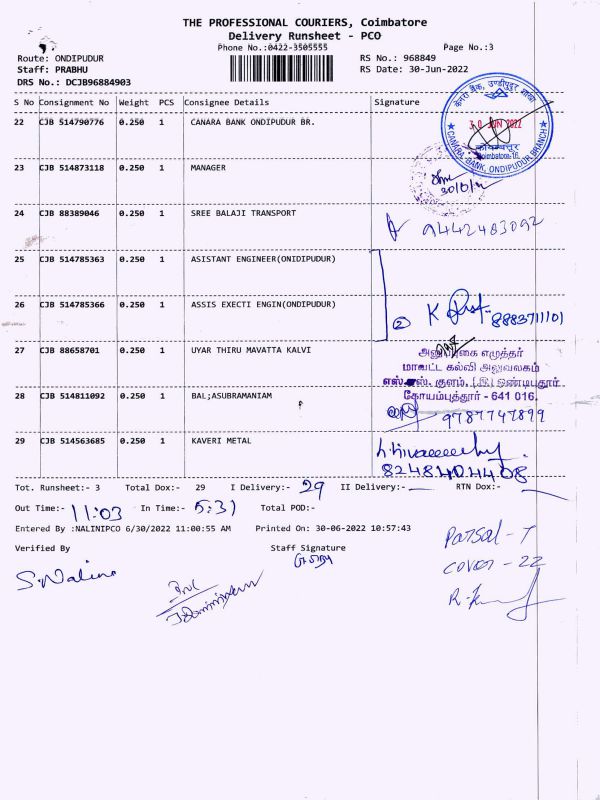 THE PROFESSIONAL COURIERS, Coimbatore
Delivery Runsheet - PCO
Phone No.:0422-3505555
Page No.:3
Route: ONDIPUDUR
RS No.: 968849
Staff: PRABHU
RS Date: 30-Jun-2022
DRS No.: DCJB96884903
S No Consignment No Weight PCS Consignee Details Signature
22 CJB 514790776 0.250 1 CANARA BANK ONDIPUDUR BR.
केनरा बैंक,
30 JUN 2022
कोयम्बत्तूर
Coimbatore-16
CANARA BANK, ONDIPUDUR BRANCH
23 CJB 514873118 0.250 1 MANAGER
24 CJB 88389046 0.250 1 SREE BALAJI TRANSPORT
9442483092
25 CJB 514785363 0.250 1 ASISTANT ENGINEER(ONIDIPUDUR)
26 CJB 514785366 0.250 1 ASSIS EXECTI ENGIN(ONDIPUDUR)
2 K 8883711101
27 CJB 88658701 0.250 1 UYAR THIRU MAVATTA KALVI
எழுத்தர்
மாவட்ட கல்வி அலுவலகம்
எஸ்.எஸ். குளம், (இ) ஒண்டிபுதூர்
28 CJB 514811092 0.250 1 BAL;ASUBRAMANIAM
கோயம்புத்தூர் - 641 016.
9787747899
29 CJB 514563685 0.250 1 KAVERI METAL
8248404408
Tot. Runsheet:- 3 Total Dox:- 29 I Delivery:- 29 II Delivery:- RTN Dox:-
Out Time:- 11:03 In Time:- 5:31 Total POD:-
Entered By :NALINIPCO 6/30/2022 11:00:55 AM Printed On: 30-06-2022 10:57:43
Verified By Staff Signature
S. Nalini
Parsal - 7
cover - 22